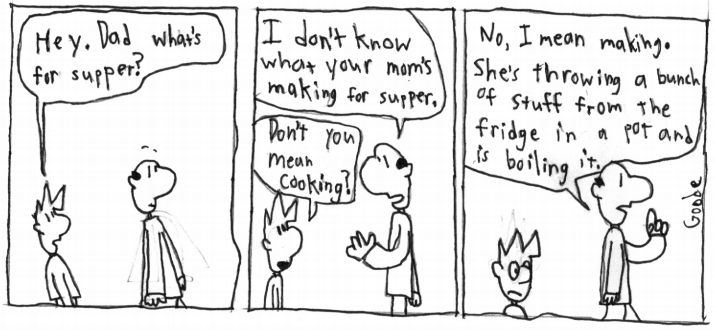 Hey. Dad what's
for supper?
I don't know
what your mom's
making for supper.
Don't you
mean
cooking?
No, I mean making.
She's throwing a bunch
of stuff from the
fridge in a pot and
is boiling it.
Goobe